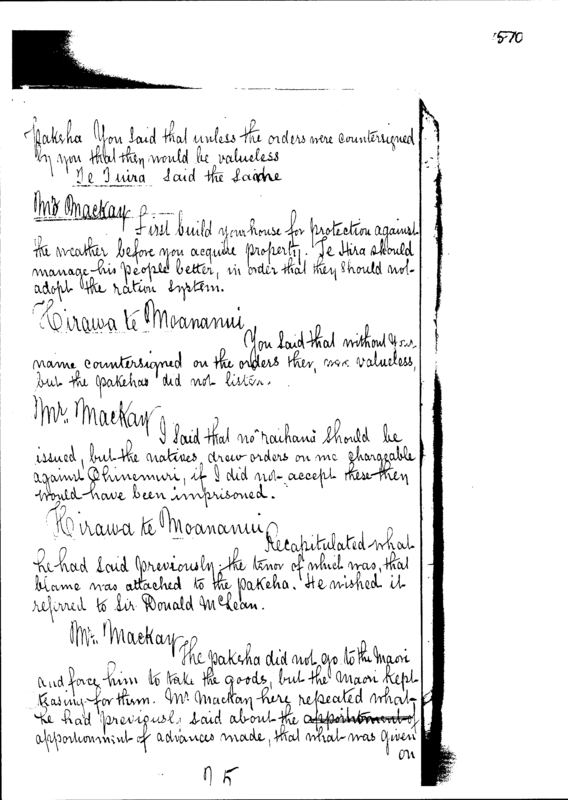 570
Pakeha You said that unless the orders were countersigned
by you that they would be valueless
Te Tuira said the same
Mr Mackay
First build your house for protection against
the weather before you acquire property. Te Hira should
manage his people better, in order that they should not
adopt the ration system.
Hirawa te Moananui
You said that without your
name countersigned on the orders they were valueless,
but the pakehas did not listen.
Mr. Mackay
I said that no "raihana" should be
issued, but the natives drew orders on me chargeable
against Ohinemuri, if I did not accept these they
would have been imprisoned.
Hirawa te Moananui
Recapitulated what
he had said previously; the tenor of which was, that
blame was attached to the pakeha. He wished it
referred to Sir Donald McLean.
Mr. Mackay
The pakeha did not go to the Maori
and force him to take the goods, but the Maori kept
teasing for them. Mr Mackay here repeated what
he had previously said about the apportionment of
apportionment of advances made, that what was given
on
75